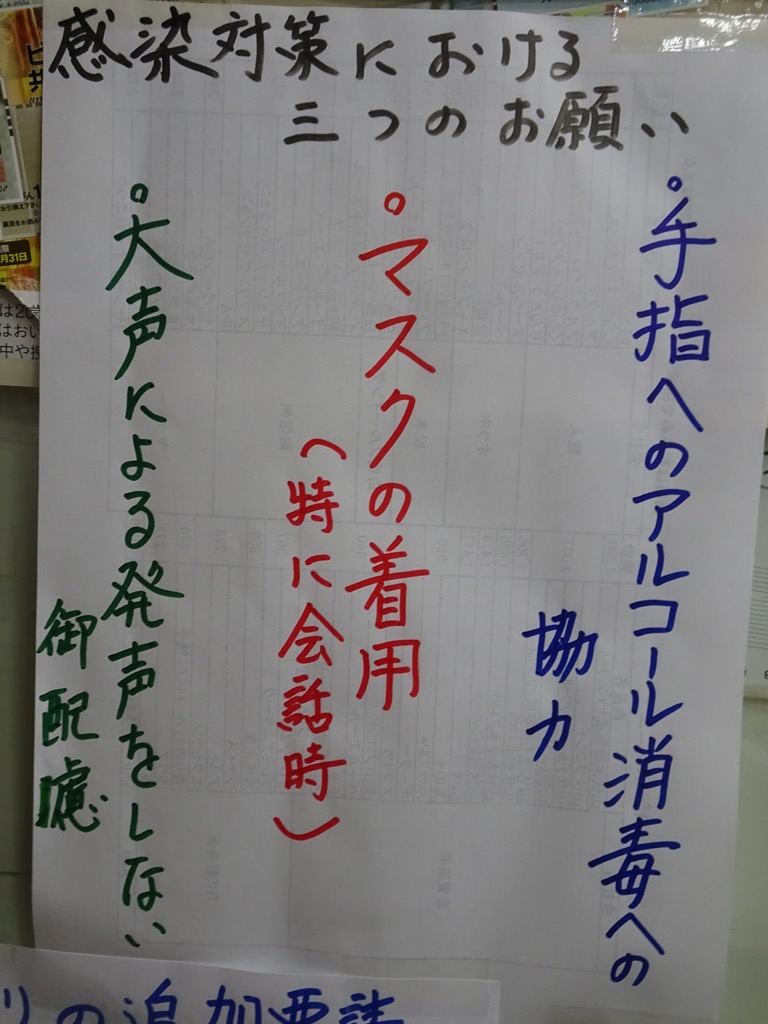 感染対策における
三つのお願い
・手指へのアルコール消毒への
協力
・マスクの着用
(特に会話時)
・大声による発声をしない
御配慮
りの追加要請